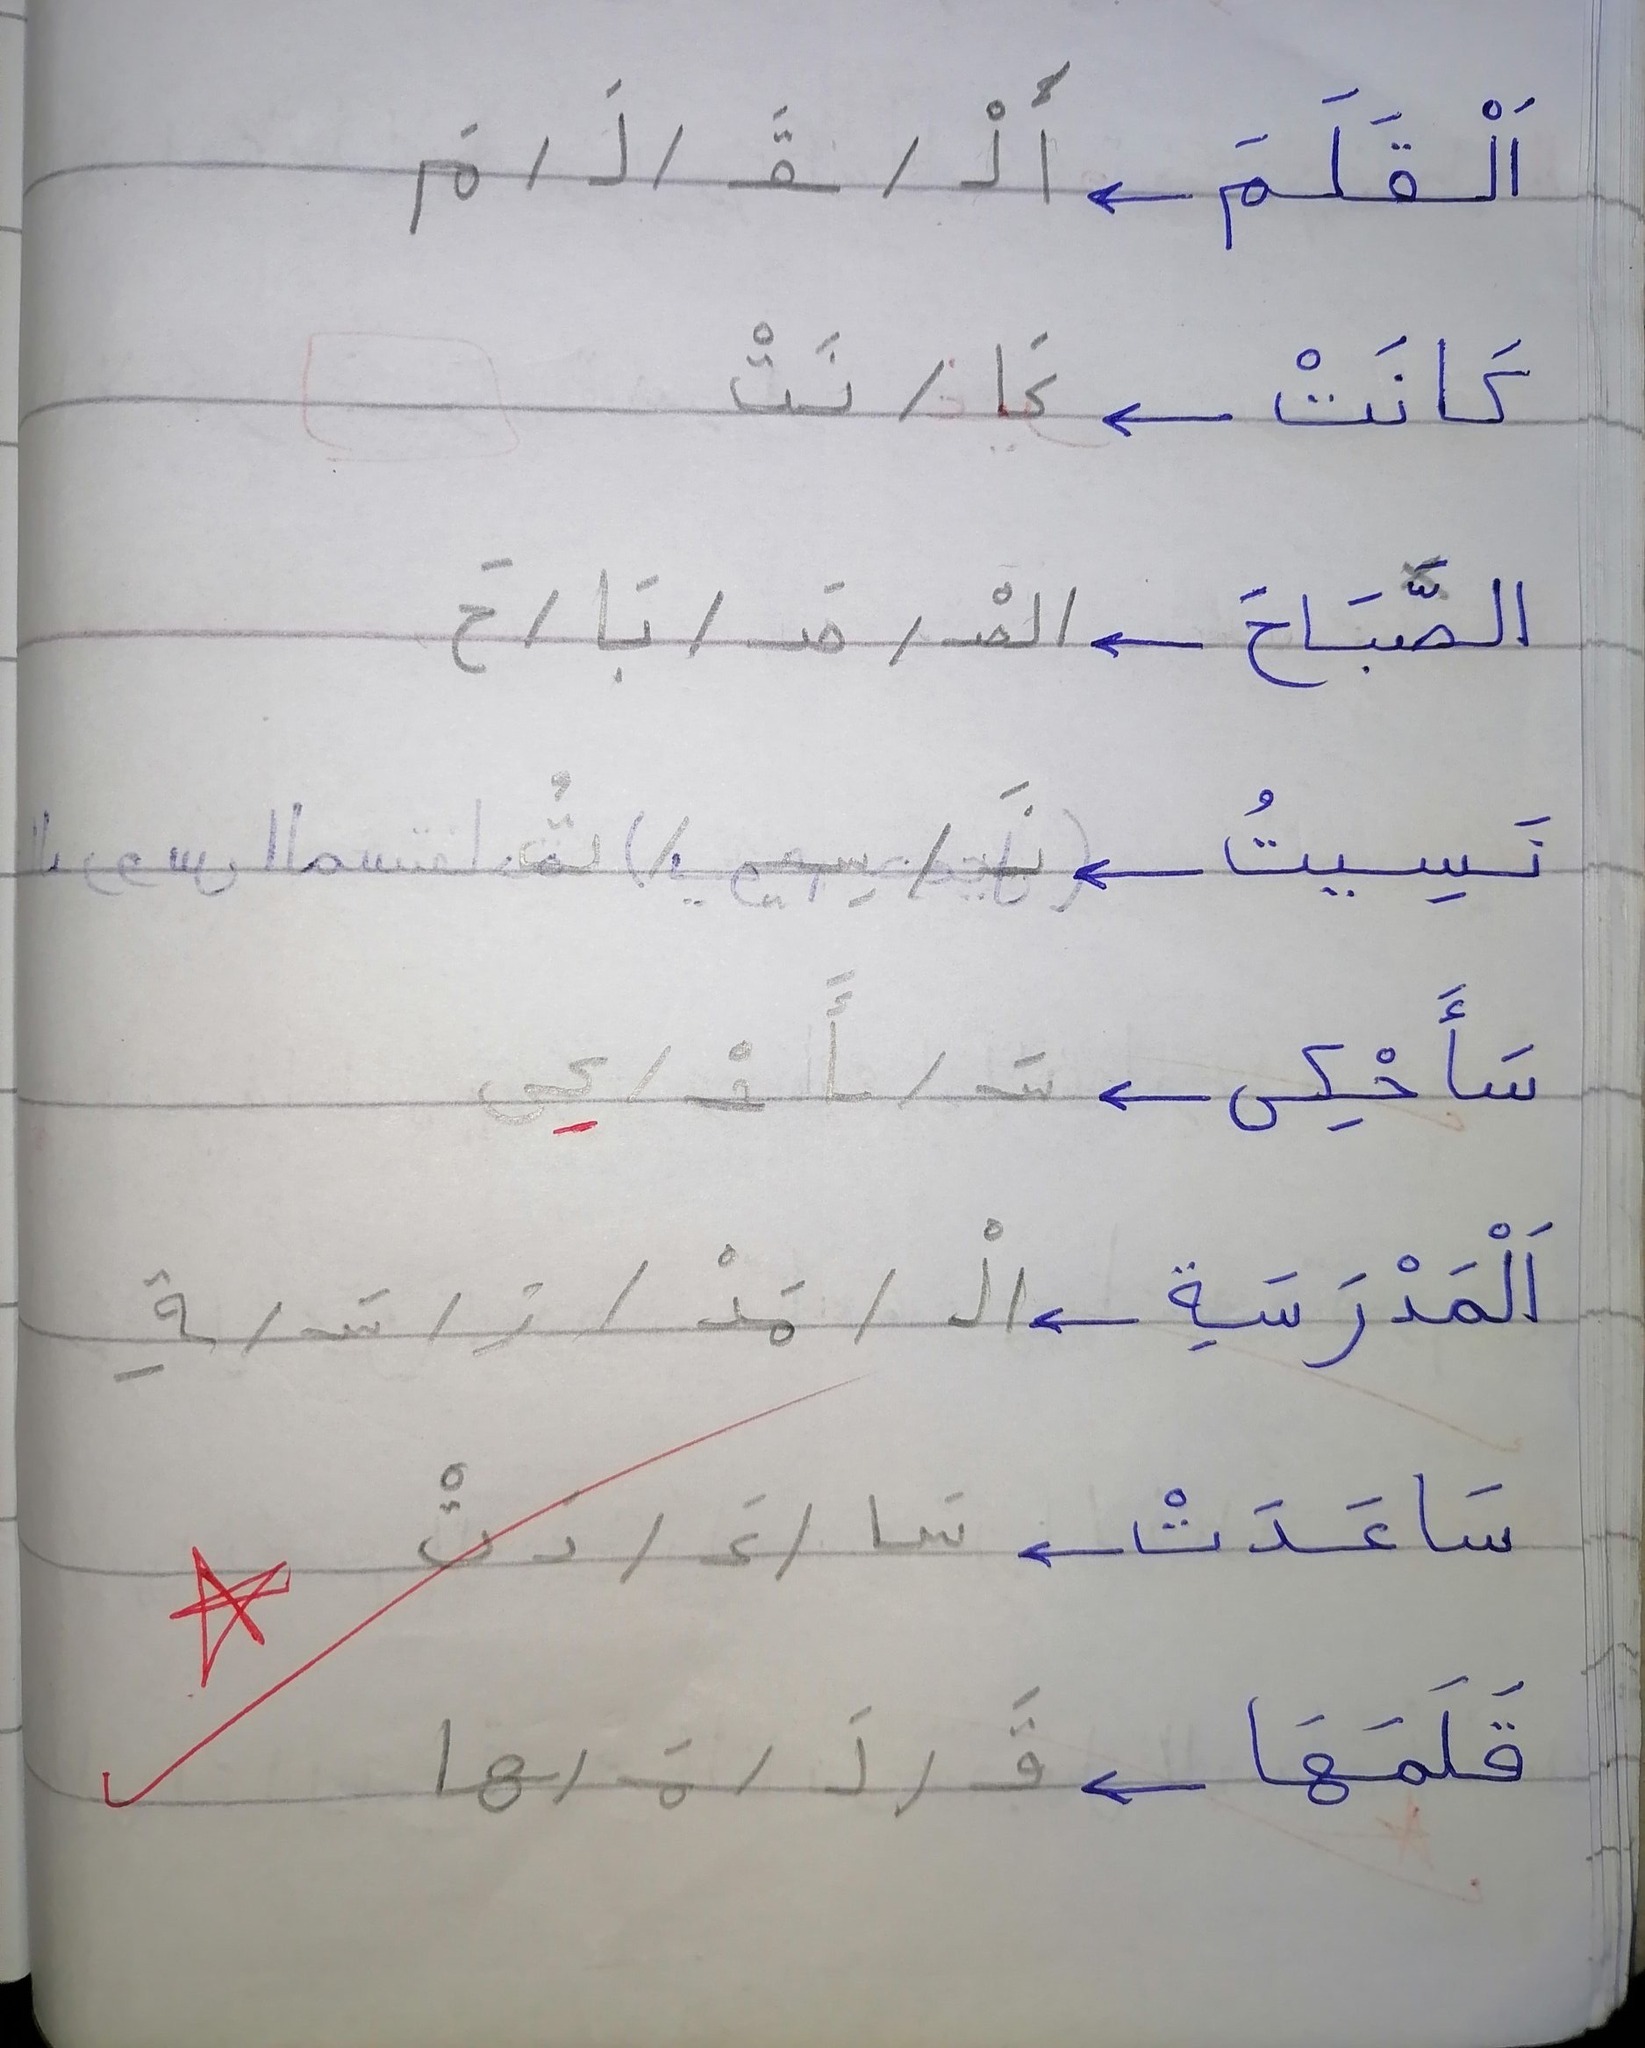 اَلْقَلَمَ ← أَلْ / قَـ / لَـ / مَ
كَانَتْ ← كَا / نَتْ
الصَّبَاحَ ← الصْـ / صَـ / بَا / حَ
نَسِيتُ ← نَـ / سِيـ / تُ
سَأَحْكِي ← سَـ / أَحْـ / كِي
اَلْمَدْرَسَةِ ← الْـ / مَدْ / رَ / سَـ / ـةِ
سَاعَدَتْ ← سَا / عَـ / دَ / تْ
قَلَمَهَا ← قَـ / لَـ / مَـ / ها